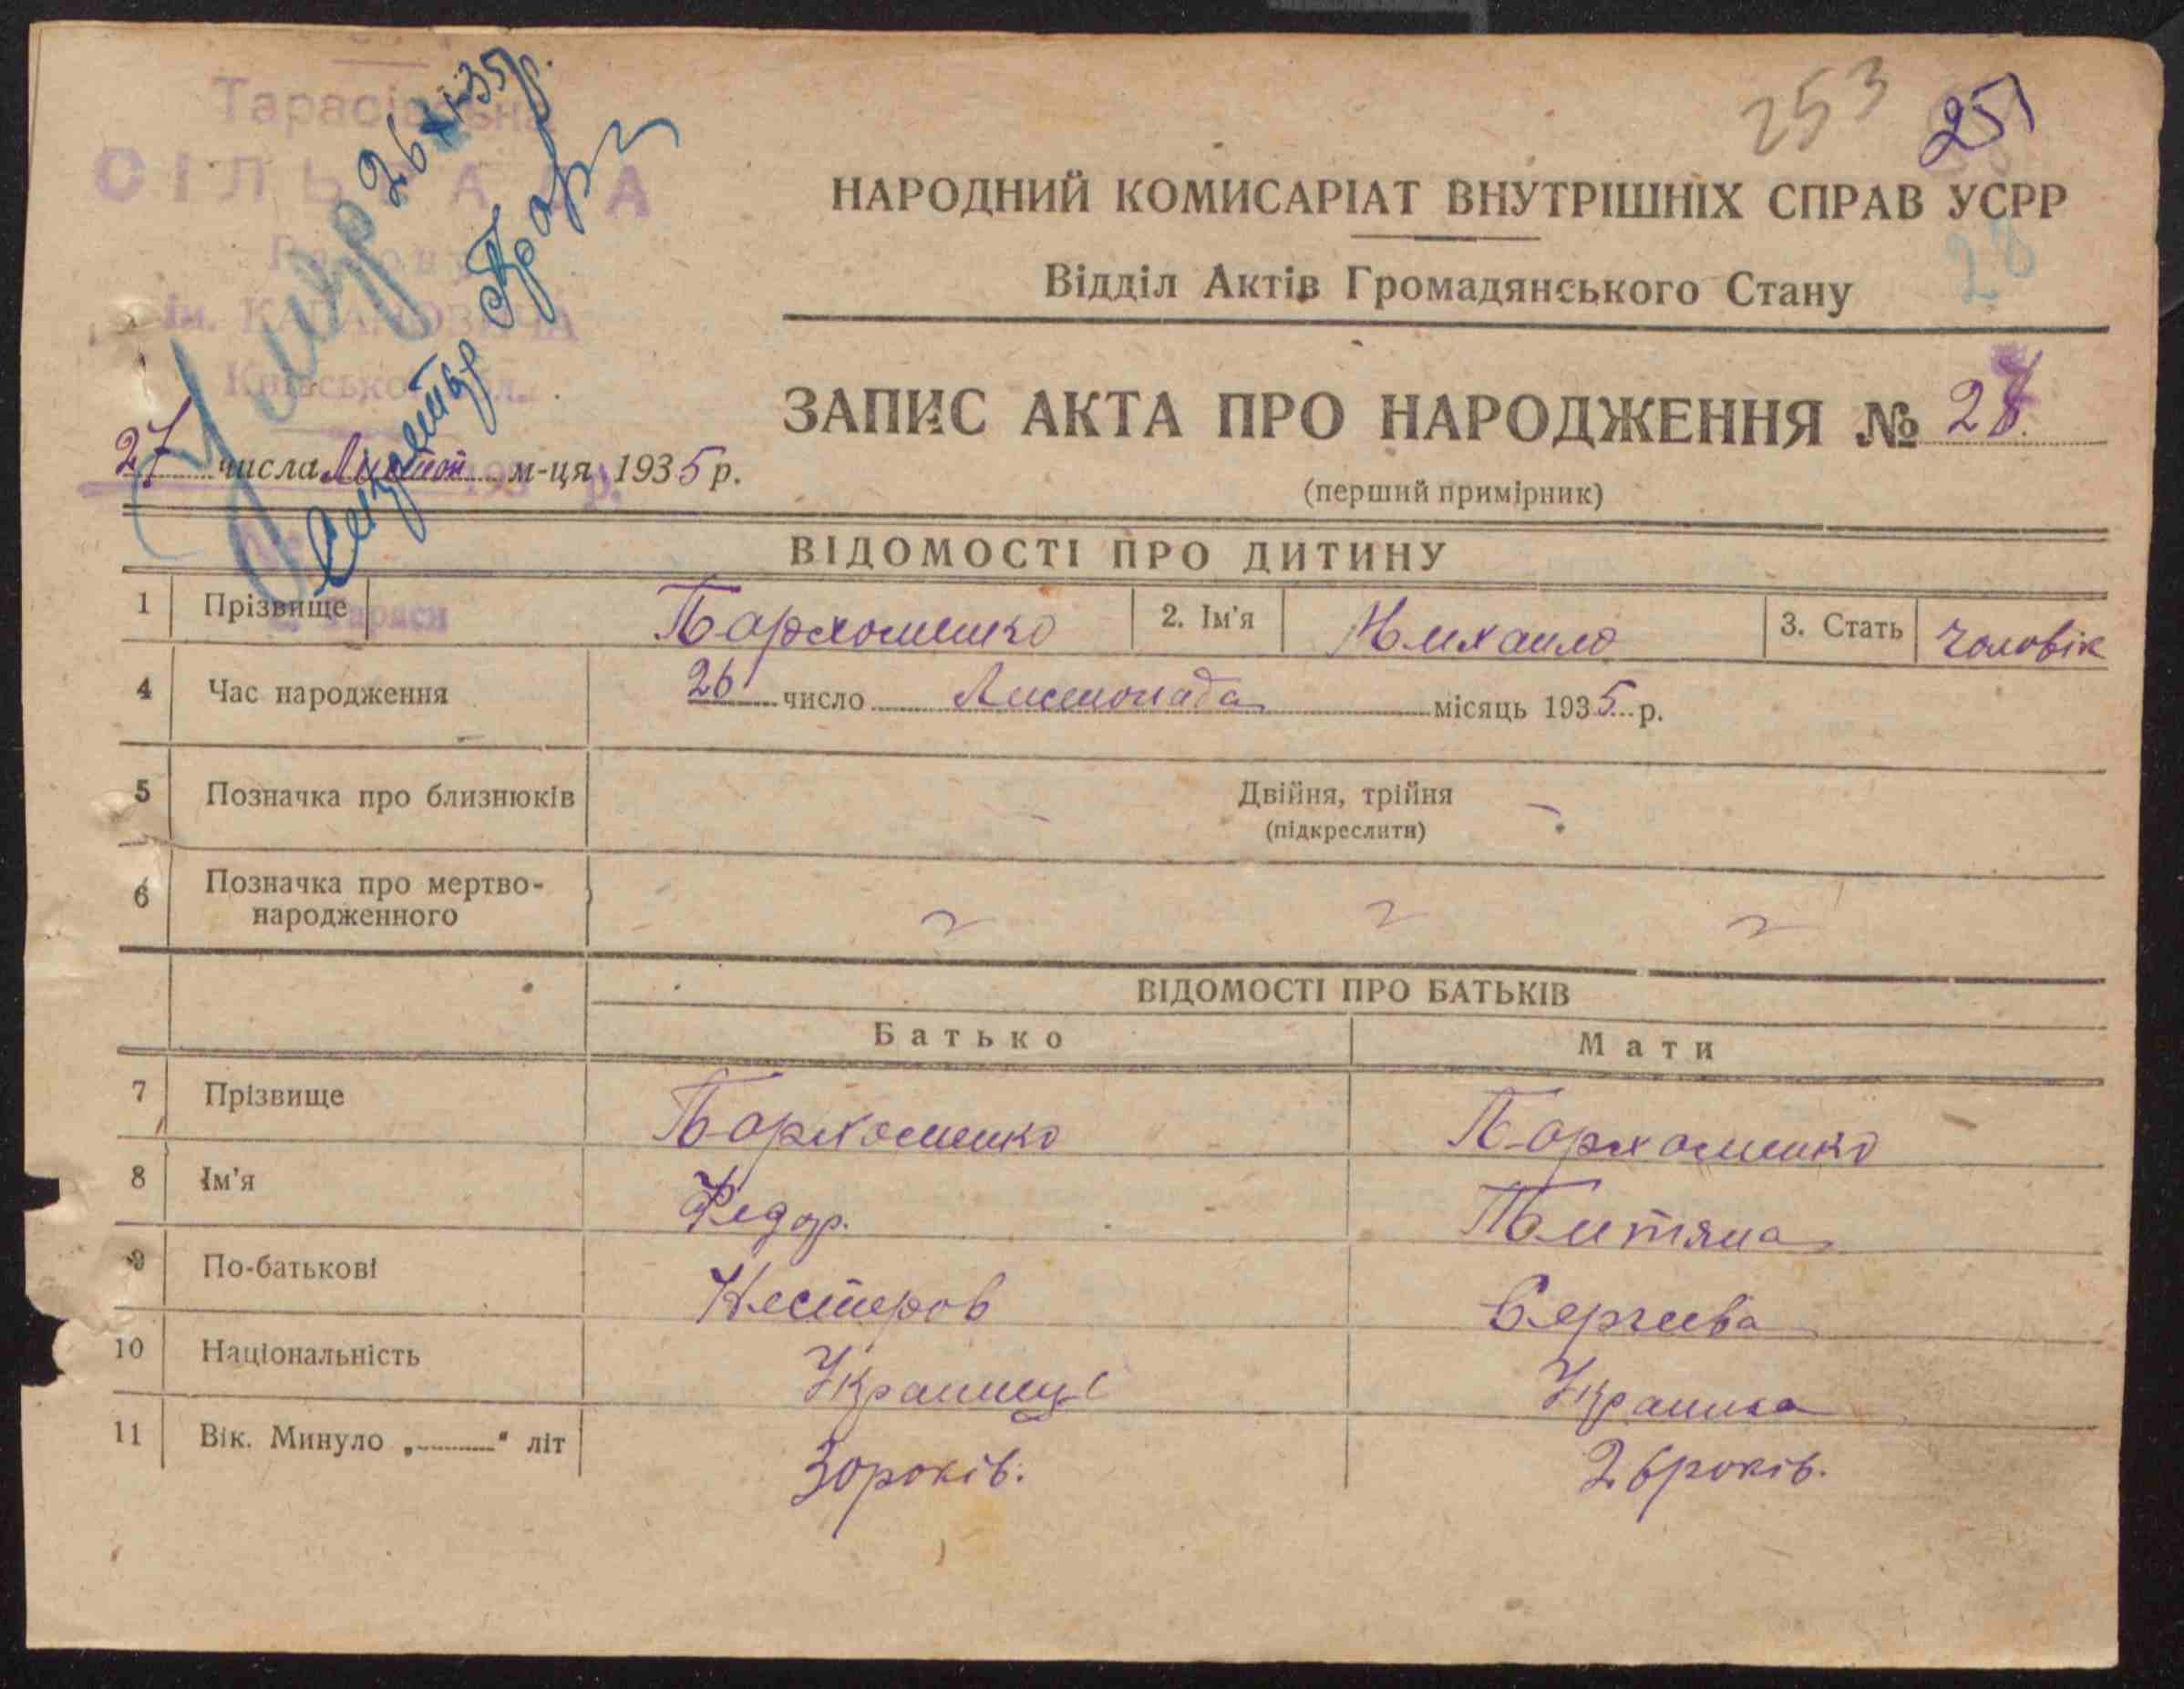 Тарасівська
СІЛЬРАДА
Району
ім. КАГАНОВИЧА
Київської обл.
26 XI-35р.
Секретар
253
251
НАРОДНИЙ КОМИСАРІАТ ВНУТРІШНІХ СПРАВ УСРР
28
Відділ Актів Громадянського Стану
ЗАПИС АКТА ПРО НАРОДЖЕННЯ № 28.
27 числа Листоп м-ця 1935 р.
(перший примірник)
ВІДОМОСТІ ПРО ДИТИНУ
1 Прізвище Пархоменко 2. Ім'я Михаило 3. Стать чоловік
4 Час народження 26 число Листопада місяць 1935 р.
5 Позначка про близнюків Двійня, трійня -
(підкреслити)
6 Позначка про мертво-
народженного
ВІДОМОСТІ ПРО БАТЬКІВ
Батько Мати
7 Прізвище Пархоменко Пархоменко
8 Ім'я Федор. Титяна
9 По-батькові Нестеров Сергеева
10 Національність Украинец Украинка
11 Вік. Минуло „-----" літ 30 років. 26 років.